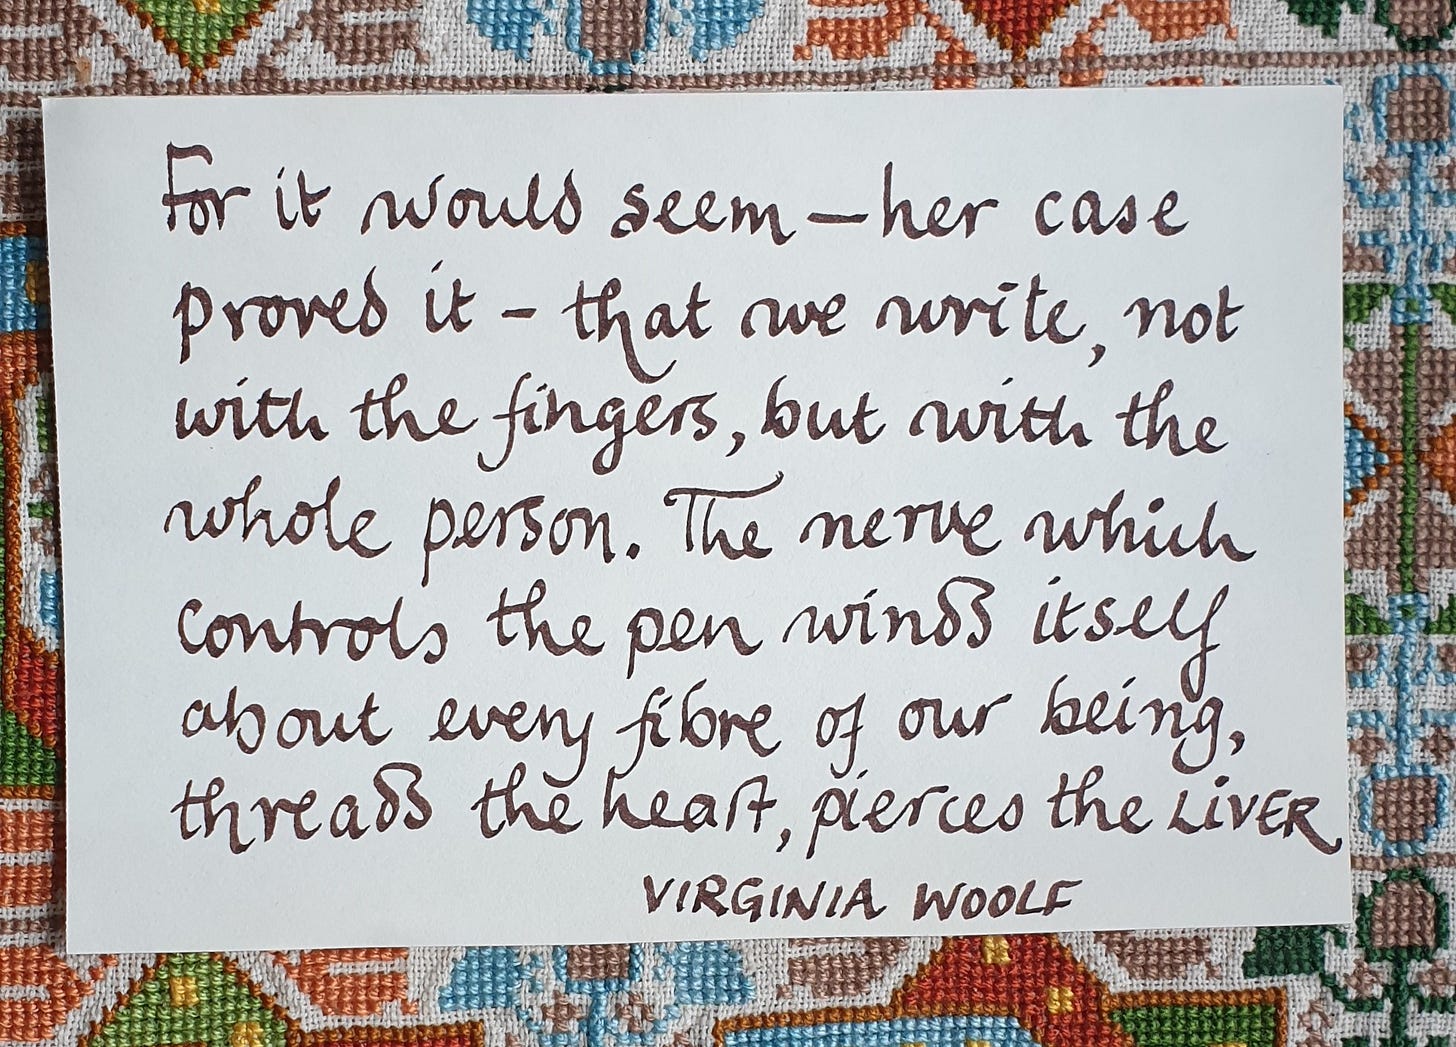 For it would seem — her case
proved it - that we write, not
with the fingers, but with the
whole person. The nerve which
controls the pen winds itself
about every fibre of our being,
threads the heart, pierces the LIVER
VIRGINIA WOOLF